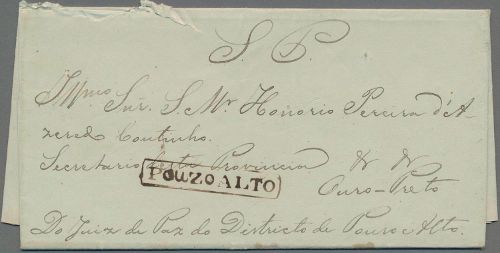 S. P.
Illmo Snr. S. Mr Honorio Pereira d'A-
zeredo Coutinho.
Secretario desta Provincia & &
POUZO ALTO
Ouro-Preto
Do Juiz de Paz do Districto de Pouso Alto.